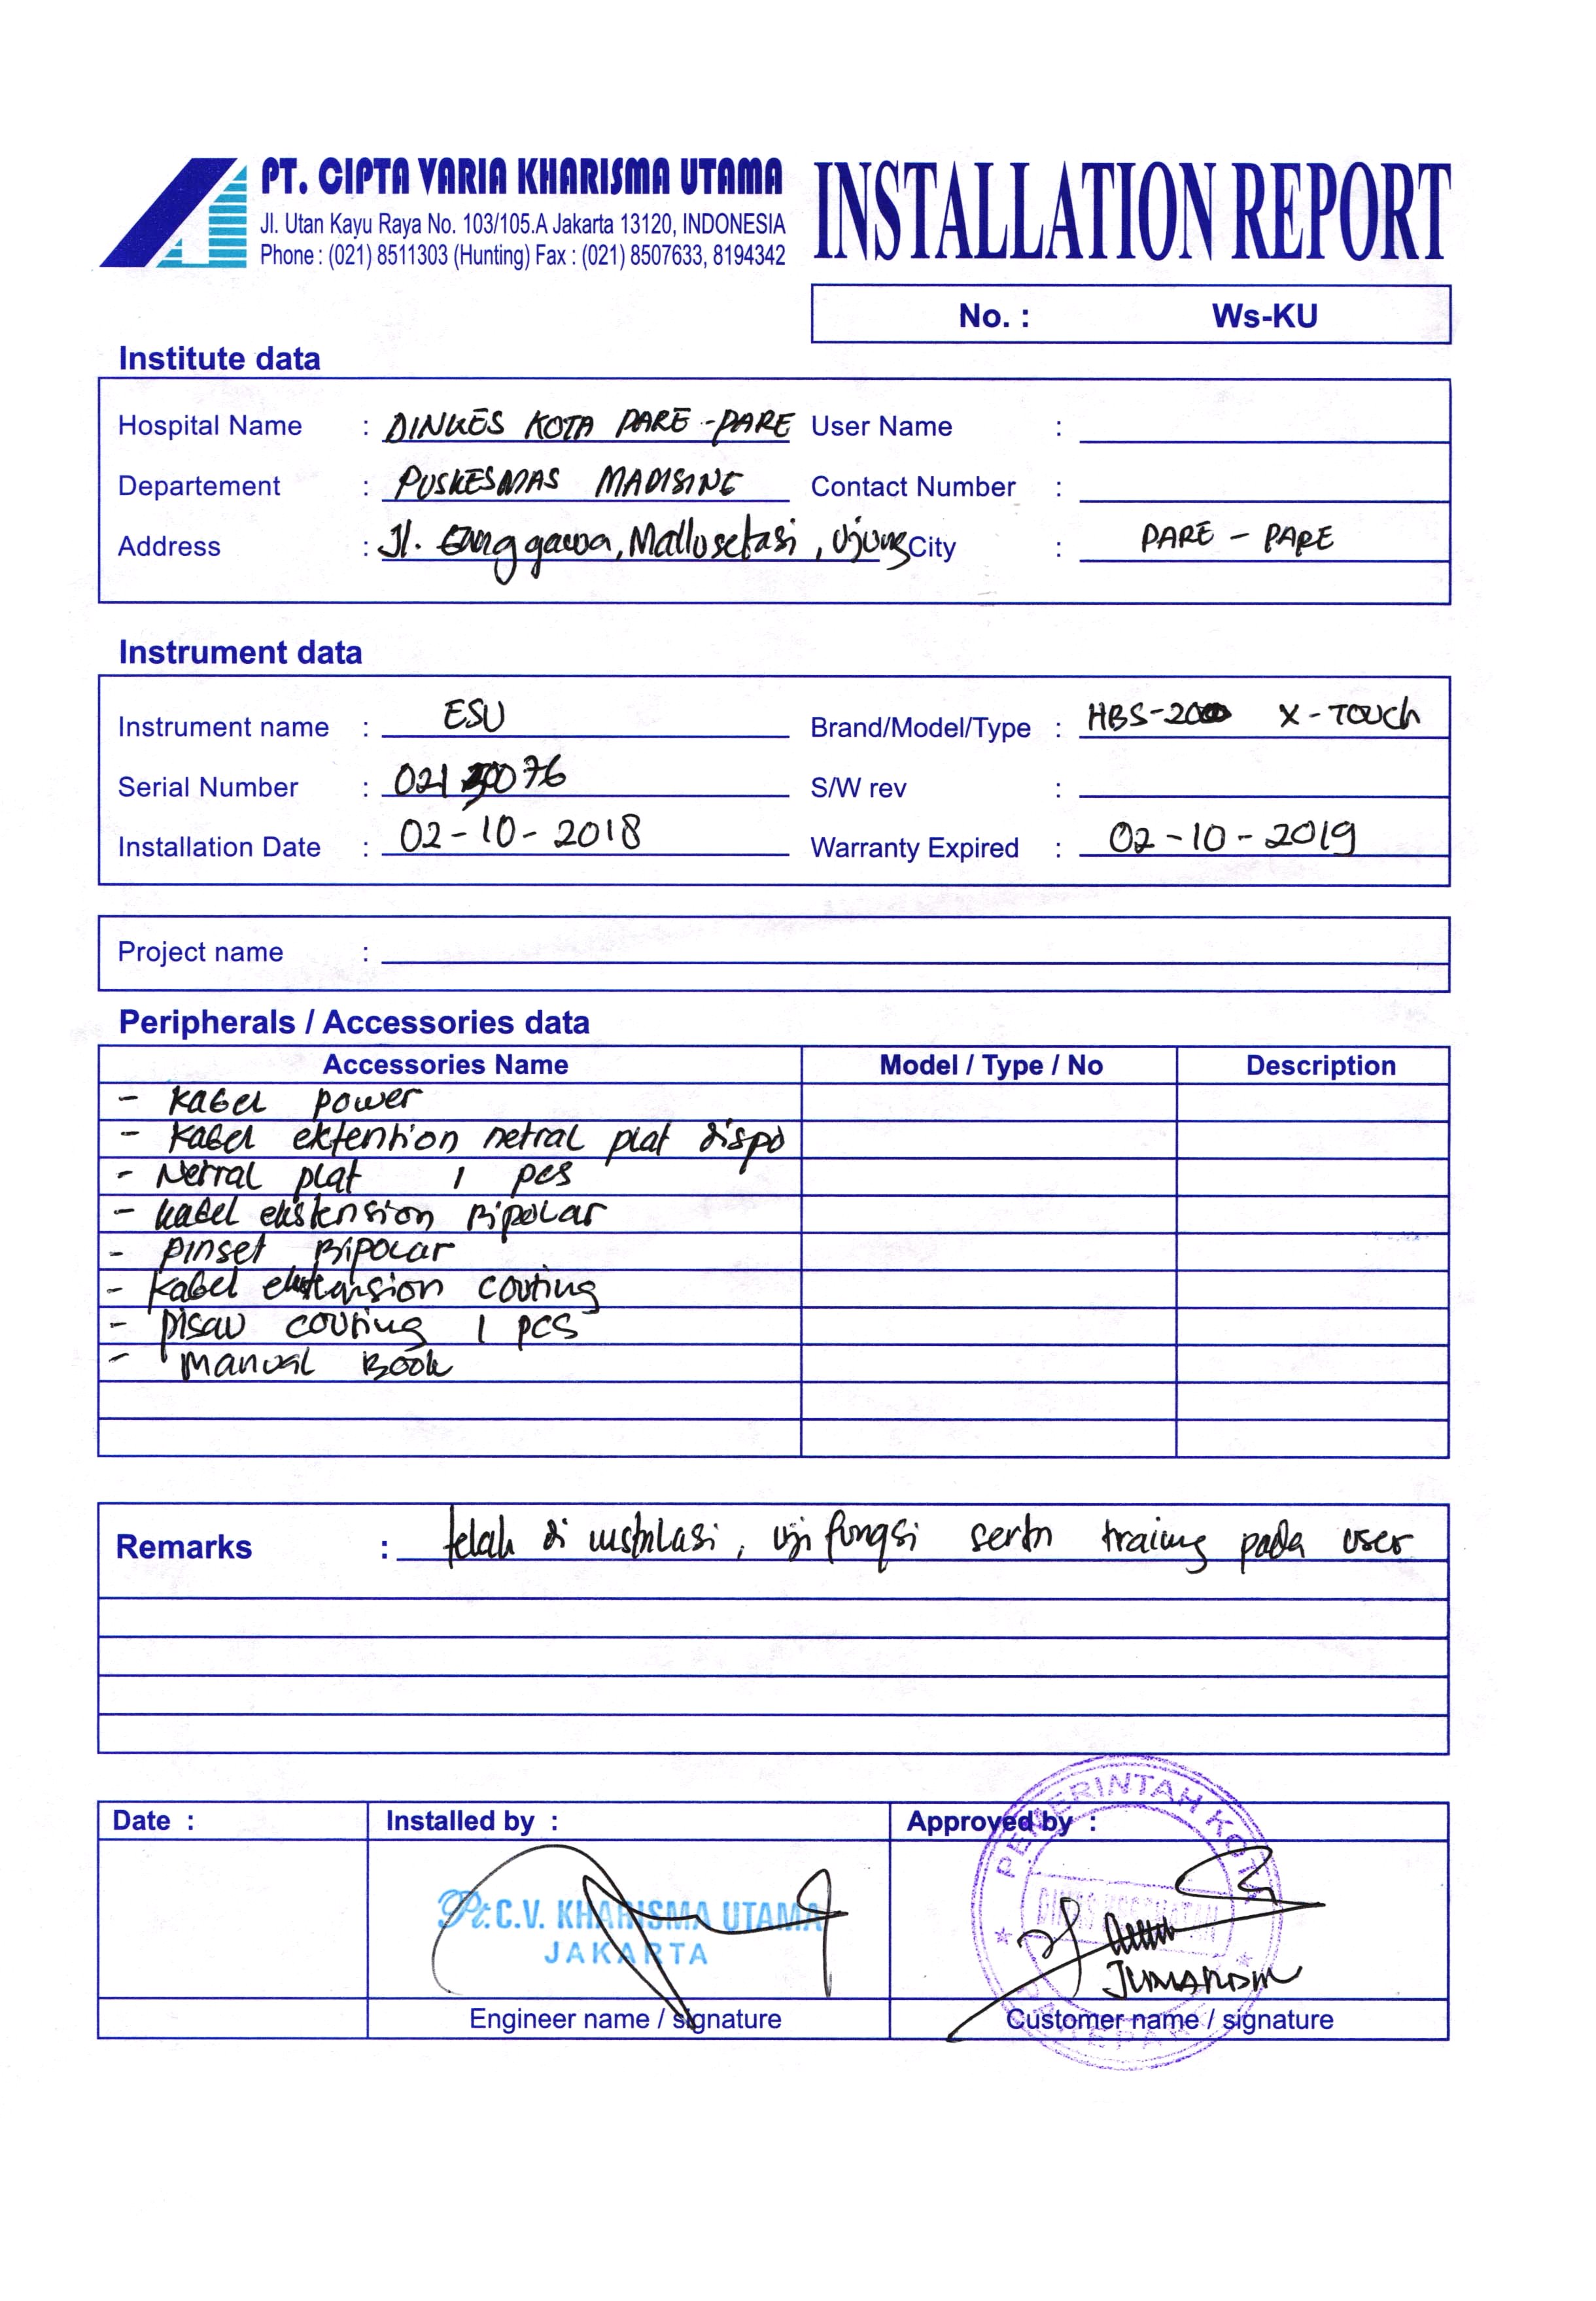 PT. CIPTA VARIA KHARISMA UTAMA
Jl. Utan Kayu Raya No. 103/105.A Jakarta 13120, INDONESIA
Phone : (021) 8511303 (Hunting) Fax : (021) 8507633, 8194342
INSTALLATION REPORT
No. : Ws-KU
Institute data
Hospital Name : DINKES KOTA PARE-PARE User Name :
Departement : PUSKESMAS MADISING Contact Number :
Address : Jl. Mallusetasi, Ujung City : PARE - PARE
Instrument data
Instrument name : ESU Brand/Model/Type : HBS-200 X-TOUCH
Serial Number : S/W rev :
Installation Date : 02-10-2018 Warranty Expired : 02-10-2019
Project name :
Peripherals / Accessories data
Accessories Name Model / Type / No Description
- Kabel power
- Kabel extention netral plat dispo
- Netral plat 1 pcs
- kabel ekstension Bipolar
- pinset Bipolar
- kabel ekstension couting
- pisau couting 1 pcs
- Manual Book
Remarks : telah di instalasi, uji fungsi serta traiing pada user
Date : Installed by : Approved by :
PEMERINTAH KOTA
DINAS KESEHATAN
PAREPARE
Pt. C.V. KHARISMA UTAMA
JAKARTA
Engineer name / signature Customer name / signature